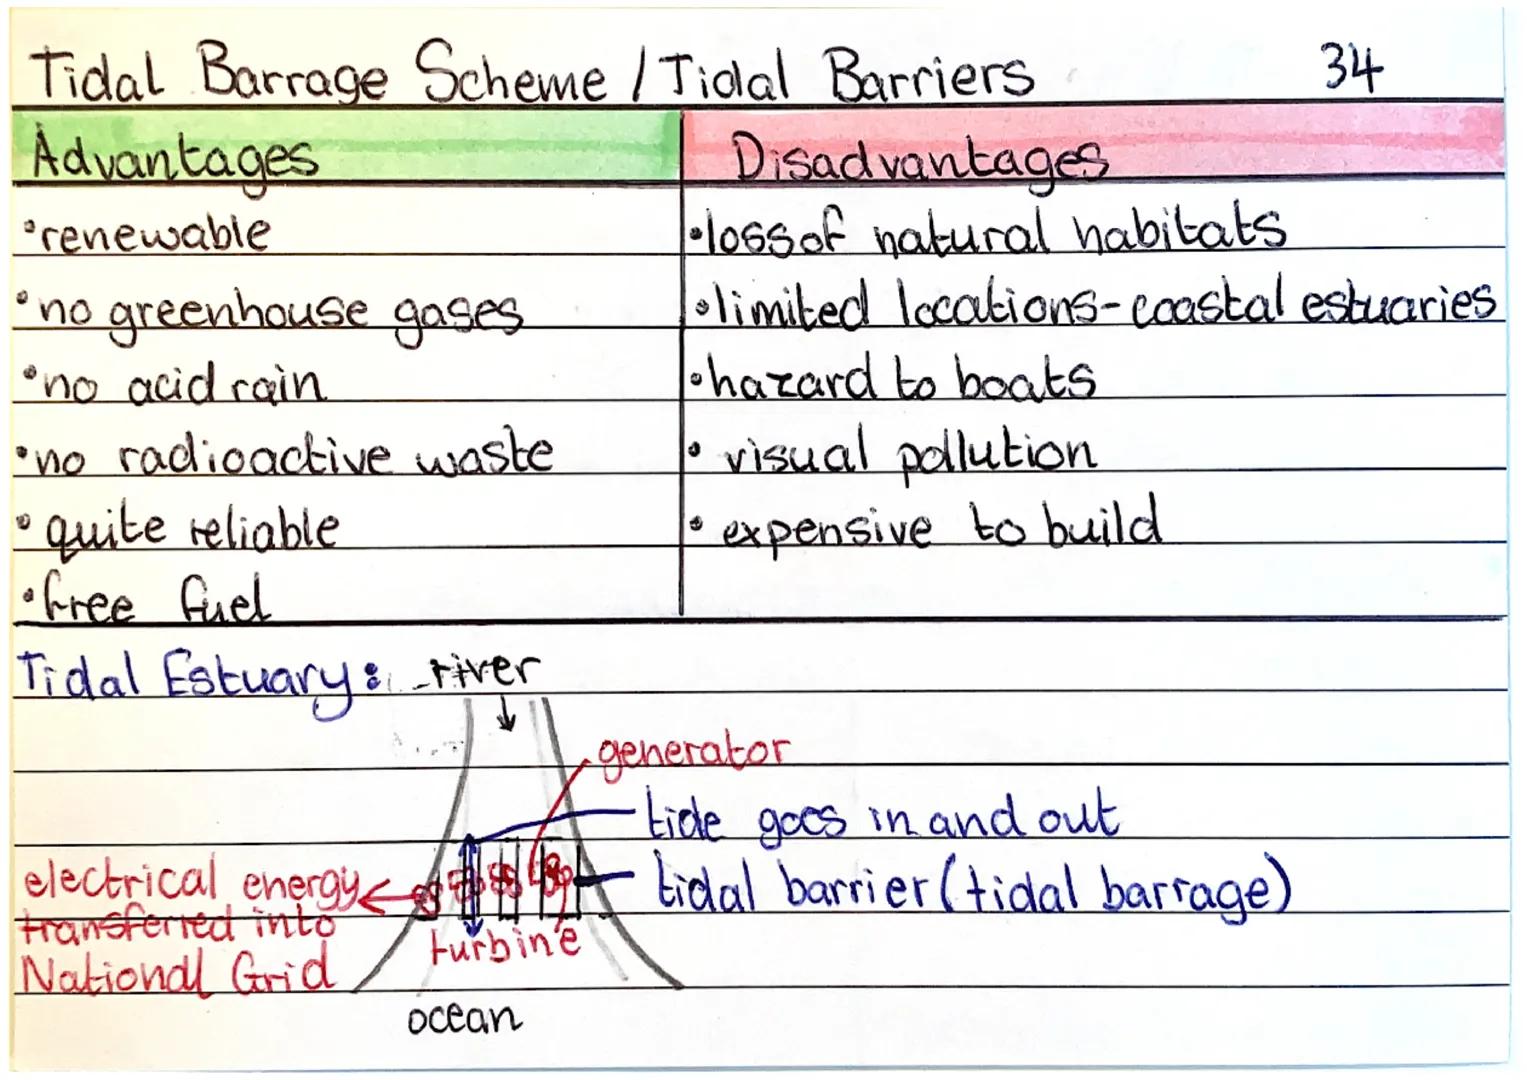 Tidal Barrage Scheme / Tidal Barriers 34
Advantages
•renewable
•no greenhouse gases
•no acid rain
•no radioactive waste
•quite reliable
•free fuel
Disadvantages
•loss of natural habitats
•limited locations-coastal estuaries
•hazard to boats
•visual pollution
•expensive to build
Tidal Estuary: river
generator
tide goes in and out
tidal barrier (tidal barrage)
electrical energy
transferred into
National Grid
turbine
ocean